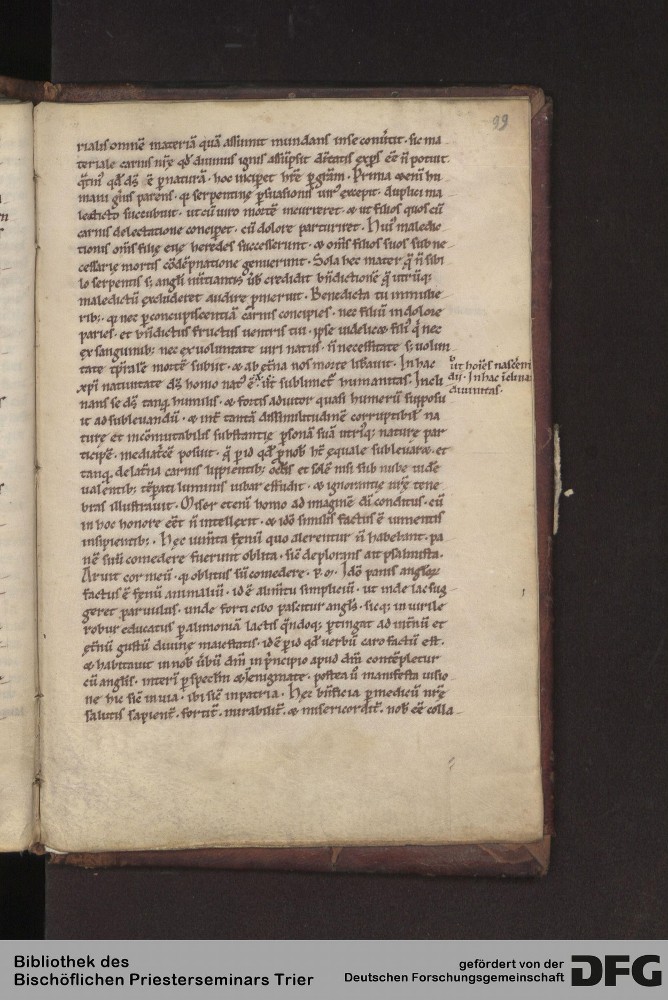 99
rialis omnē materiā quā assumit mundans in se conūtit · sic ma
teriale carnis nr̄ę qd̄ diuinus ignis assūpsit
qd̄ p naturā · hoc incipet hr̄e p gr̄am · Prima
mani gn̄is parens · q serpentinę psuasionis uir excepit · duplici ma
ledicto succubuit · ut cū uiro mortē incurreret · & ut filios quos cū
carnis delectatione concipet · cū dolore parturiret · Hui maledic
tionis om̄s filię eius heredes successerunt · & om̄s filios suos sub ne
cessarię mortis cōdēpnatione genuerunt · Sola hec mater q̄ n̄ sibi
lo serpentis s; angli nūtiantis ūb credidit bn̄dictionē q̄ utrūq;
maledictū excluderet audire pmeruit · Benedicta tu in mulie
rib; · q nec p concupiscentiā carnis concipies · nec filiū in dolore
paries · et bn̄dictus fructus uentris tui · ipse uidelicet fili q̄ nec
ex sanguinib; nec ex uoluntate uiri natus · n̄ necessitate s; uolun
tate mortē subiit · & ab et̄na nos morte libauit · In hac
ut hoīes nasceren
dii · In hac īclinat
diuinitas ·
xp̄i natiuitate ds̄ homo nat ē · ut sublimet humanitas · Incli
nans se ds̄ tanq humilis · & fortis adiutor quasi humerū supposu
it ad subleuandū · & int tantā dissimilitudinē corruptibilis na
turę et incōmutabilis substantię psonā suā utriq; naturę par
ticipē · mediatōē posuit · q̄ p id qd̄ p nob ht̄ ęquale subleuaret et
tanq de lat̄na carnis lippientib; oclis et solē nisi sub nube uide
ualentib; tēpati luminis iubar effudit · & ignorantię nr̄ę tene
bras illustrauit · Miser etenī homo ad imaginē dī conditus · cū
in hoc honore eēt n̄ intellexit · & idō similis factus ē iumentis
insipientib; · Hęc iumta fenū quo alerentur n̄ habebant · pa
nē suū comedere fuerunt oblita · sic deplorans ait psalmista ·
Aruit cor meū · q oblitus sū comedere · p · m · Idō panis anglorum
factus ē fęnū animaliū · id ē alimtū simpliciū · ut inde lac sug
geret paruulus · unde forti cibo pascitur angls · sicq; in uirile
robur educatus p alimoniā lactis qn̄doq; ptingat ad int̄nū et
et̄nū gustū diuinę maiestatis · id ē p id qd̄ uerbū caro factū est ·
& habitauit in nob ūbū dm̄ in pncipio apud dm̄ contēpletur
cū anglis · interī p speclm̄ & ī enigmate · postea ū manifesta uisio
ne hic sic in uia · ibi sic in patria · Hęc bn̄ficia p medicū nr̄ę
salutis sapient · fortit · mirabilit · & misericordit · nob eē colla
Bibliothek des
Bischöflichen Priesterseminars Trier
gefördert von der
Deutschen Forschungsgemeinschaft
DFG